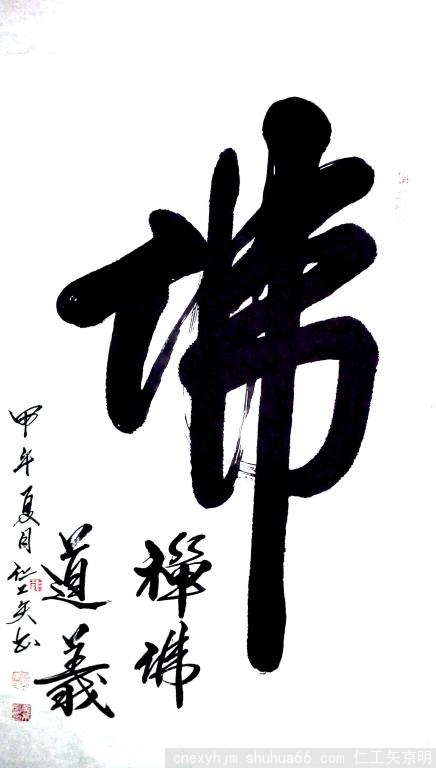 佛
禪佛
道義
甲年夏月仁工矢书
cnexyhjm.shuhua66.com 仁工矢京明